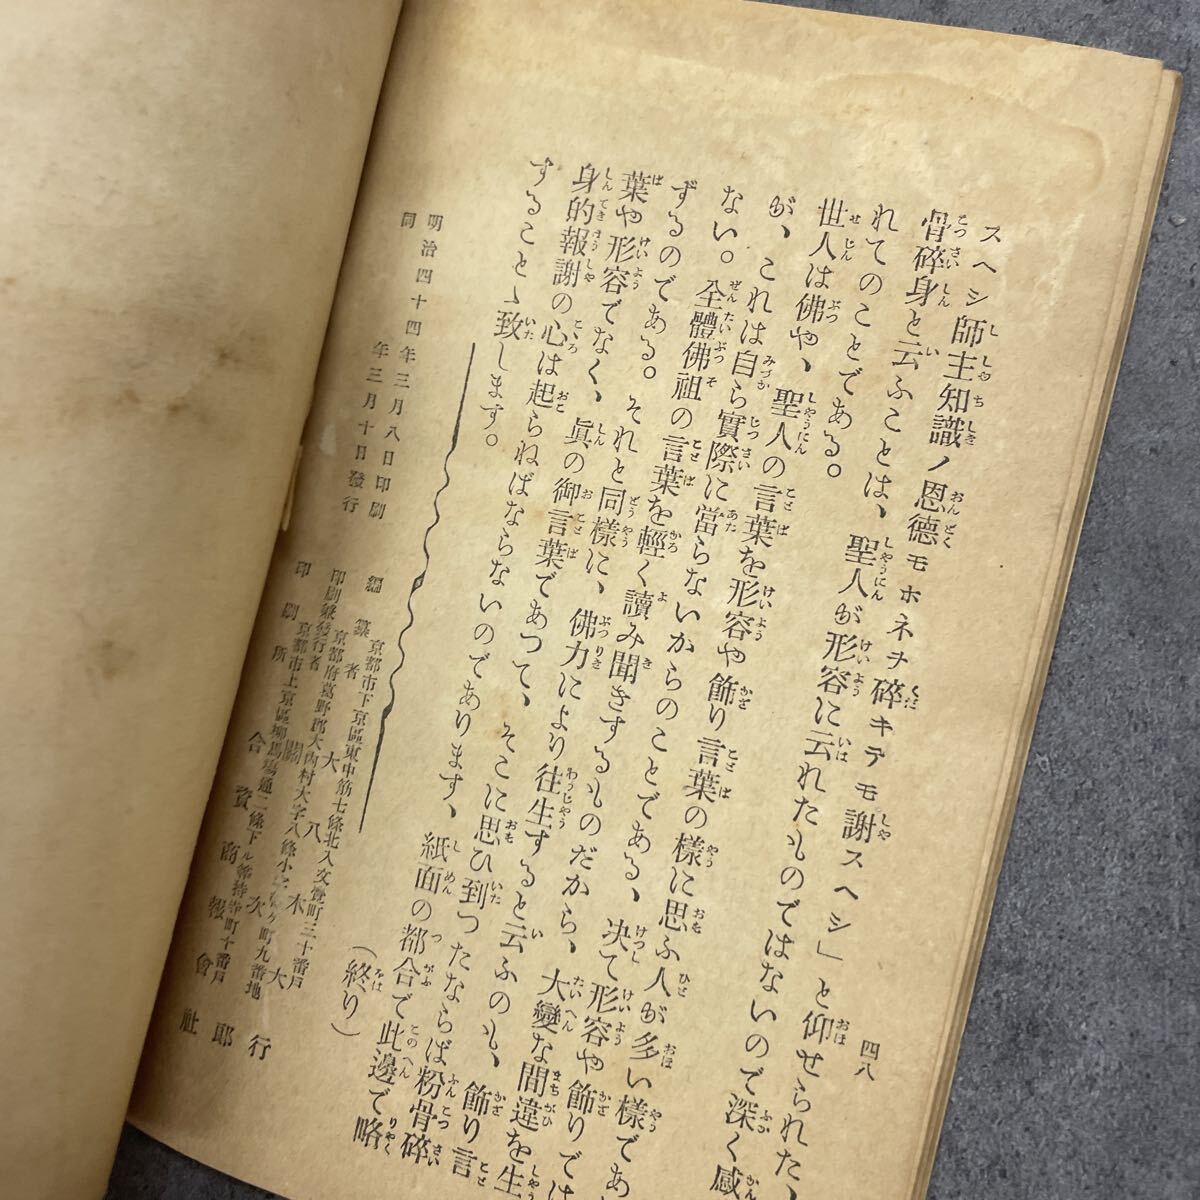 四八
スヘシ師主知識ノ恩德モホネヲ碎キテモ謝スヘシ」と仰せられた、
骨碎身と云ふことは、聖人が形容に云れたものではないので深く感
れてのことである。
世人は佛や、聖人の言葉を形容や飾り言葉の樣に思ふ人が多い樣であ
が、これは自ら實際に當らないからのことである、決て形容や飾りでは
ない。全體佛祖の言葉を輕く讀み聞きするものだから、大變な間違を生
ずるのである。それと同樣に、佛力により往生すると云ふのも、飾り言
葉や形容でなく、眞の御言葉であつて、そこに思ひ到つたならば粉骨碎
身的報謝の心は起らねばならないのであります、紙面の都合で此邊で略
することゝ致します。
(終り)
明治四十四年三月八日印刷
同年三月十日發行
京都市下京區東中筋七條北入文覺町三十番戶
編纂者 大八木
京都府葛野郡大內村大字八條小字
印刷兼發行者
京都市上京區柳馬場通二條下ル等持寺町十番戶
印刷所 合資商報會社